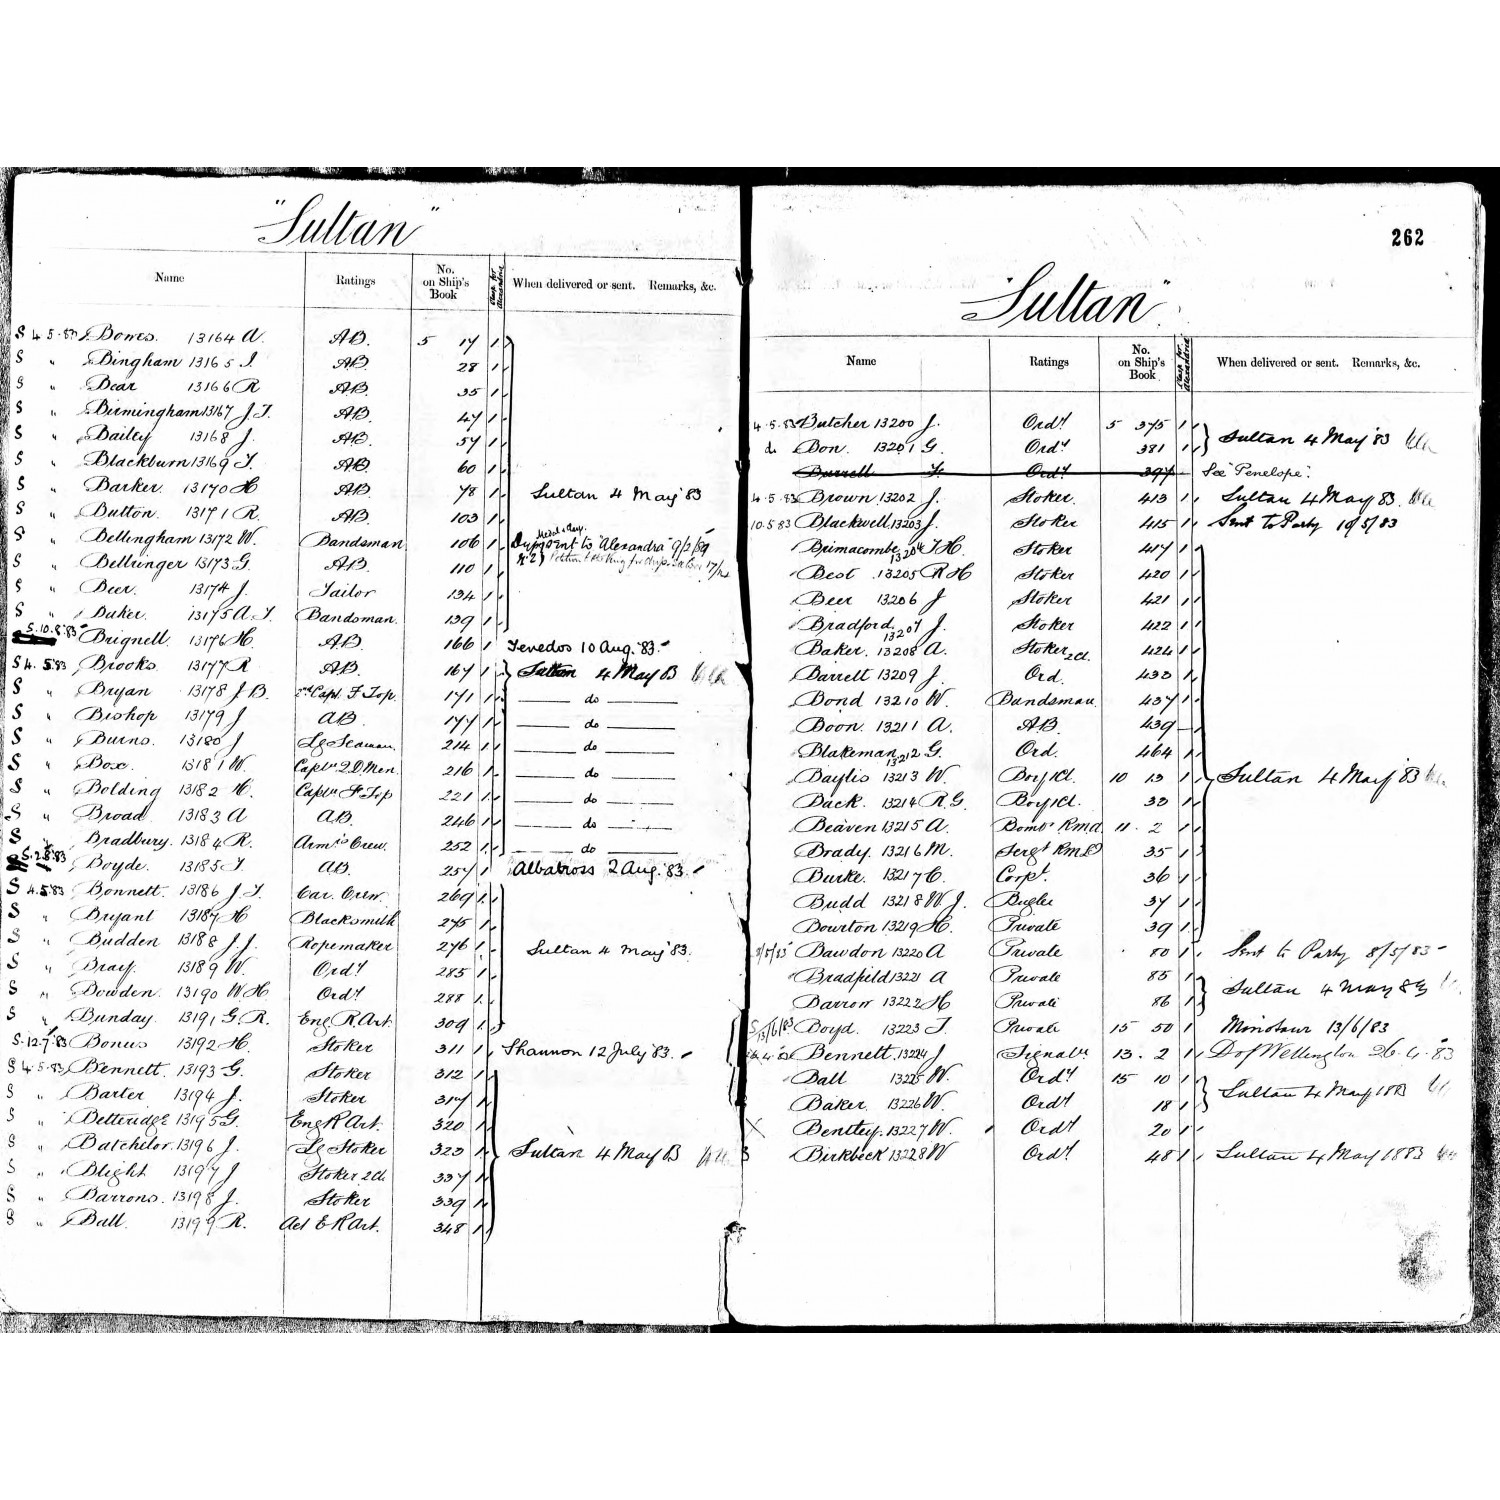 "Sultan"
Name Ratings No. on Ship's Book Clasp for Alexandria When delivered or sent. Remarks, &c.
S 4.5.83 Bowes 13164 A. AB. 5 17 1
S " Bingham 13165 J. AB. 28 1
S " Bear 13166 R AB. 35 1
S " Birmingham 13167 J.T. AB. 47 1
S " Bailey 13168 J. AB. 57 1
S " Blackburn 13169 T. AB. 60 1
S " Barker 13170 H AB. 78 1 Sultan 4 May '83
S " Button 13171 R. AB. 103 1
S " Bellingham 13172 W. Bandsman 106 1 sent to "Alexandra" 9/2/89
S " Bellringer 13173 G. AB. 110 1
S " Beer 13174 J. Tailor 134 1
S " Baker 13175 A.T. Bandsman. 139 1
S.10.8.83 Brignell 13176 H. AB. 166 1 Tenedos 10 Aug. '83.
S 4.5.83 Brooks 13177 R AB. 167 1 Sultan 4 May 83
S " Bryan 13178 J.B. 2nd Capt. F. Top. 171 1 do
S " Bishop 13179 J AB. 177 1 do
S " Burns 13180 J Lg Seaman 214 1 do
S " Box 13181 W. Captn Q.D. Men. 216 1 do
S " Bolding 13182 H. Captn F Top 221 1 do
S " Broad 13183 A AB. 246 1 do
S " Bradbury 13184 R. Arm's Crew. 252 1 do
S.2.8.83 Boyde 13185 T. AB. 257 1 Albatross 2 Aug. '83.
S 4.5.83 Bonnett 13186 J.T. Car. Crew. 269 1
S " Bryant 13187 H Blacksmith 275 1
S " Budden 13188 J.J. Ropemaker 276 1 Sultan 4 May '83.
S " Bray 13189 W. Ordy 285 1
S " Bowden 13190 W H Ordy 288 1
S " Bunday 13191 G.R. Eng. R. Art. 309 1
S.12.7.83 Bonus 13192 H. Stoker 311 1 Shannon 12 July '83.
S 4.5.83 Bennett 13193 G. Stoker 312 1
S " Barter 13194 J. Stoker 317 1
S " Betteridge 13195 G. Eng R Art. 320 1
S " Batchelor 13196 J. Lg Stoker 323 1 Sultan 4 May 83
S " Blight 13197 J Stoker 2Cl. 337 1
S " Barrons 13198 J. Stoker 339 1
S " Ball 13199 R. Act E R Art. 348 1
262
"Sultan"
Name Ratings No. on Ship's Book Clasp for Alexandria When delivered or sent. Remarks, &c.
4.5.83 Butcher 13200 J. Ordy 5 375 1
do Bon. 13201 G. Ordy 381 1 Sultan 4 May '83
Burrell Ordy 397 See "Penelope".
4.5.83 Brown 13202 J. Stoker. 413 1 Sultan 4 May 83.
10.5.83 Blackwell 13203 J. Stoker 415 1 Sent to Party 10/5/83
Brimacombe 13204 T.H. Stoker 417 1
Best 13205 R H Stoker 420 1
Beer 13206 J Stoker 421 1
Bradford 13207 J. Stoker 422 1
Baker 13208 A. Stoker 2Cl. 424 1
Barrett 13209 J. Ord. 433 1
Bond 13210 W. Bandsman. 437 1
Boon 13211 A. AB 439
Blakeman 13212 G. Ord. 464 1
Baylis 13213 W. Boy 1Cl. 10 13 1 Sultan 4 May '83
Back 13214 R.G. Boy 1Cl. 33 1
Beaven 13215 A. Bombr R.M.A. 11. 2 1
Brady 13216 M. Sergt R.M.L.I. 35 1
Burke 13217 C. Corpl. 36 1
Budd 13218 W.J. Bugler 37 1
Bourton 13219 H. Private 39 1
8/5/83 Bawdon 13220 A Private 80 1 Sent to Party 8/5/83
Bradfield 13221 A Private 85 1
Barrow 13222 H Private 86 1 Sultan 4 May 83
S 13/6/83 Boyd 13223 T. Private 15 50 1 Minotaur 13/6/83
Bennett 13224 J Signaln 13. 2 1 D of Wellington 26.4.83
Ball 13225 W. Ordy 15 10 1
Baker 13226 W. Ordy 18 1 Sultan 4 May 1883
X Bentley 13227 W. Ordy 20 1
Birkbeck 13228 W Ordy 48 1 Sultan 4 May 1883